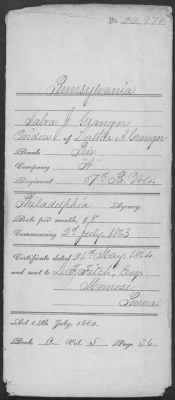 No. 22,276
Pennsylvania
Salra J. Granger
Widow of Luther A. Granger
Rank Priv
Company "A"
Regiment 57th Pa. Vols.
Philadelphia Agency.
Rate per month, $8
Commencing 2d July 1863
Certificate dated 26th May 1864
and sent to L. F. Fitch, Esq.
Montrose
Penna.
Act 14th July, 1862.
Book A Vol. 5 Page 36